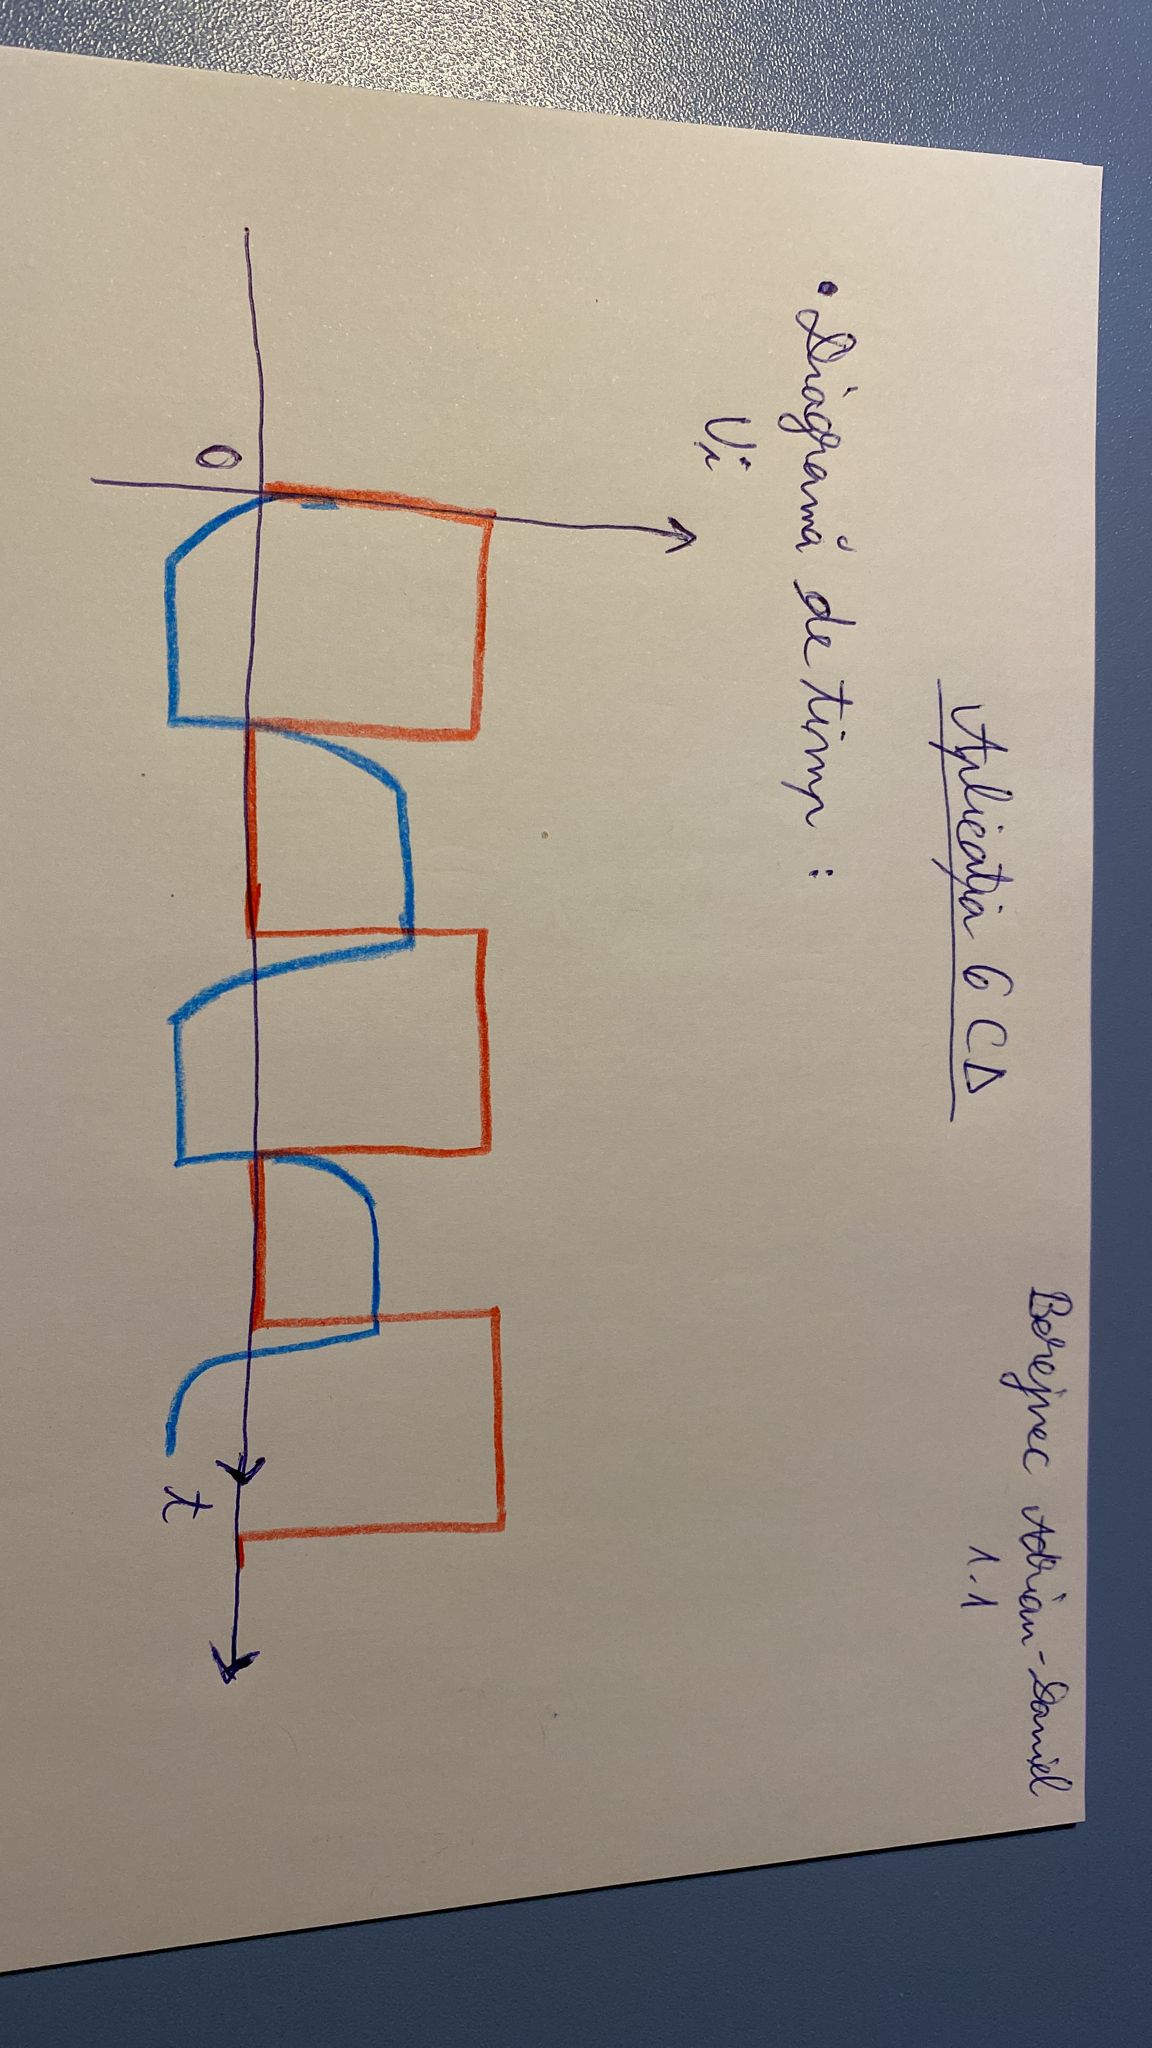 Berejnec Adrian-Daniel
1.1
Aplicația 6 CD
• Diagramă de timp :
Ui
0
t